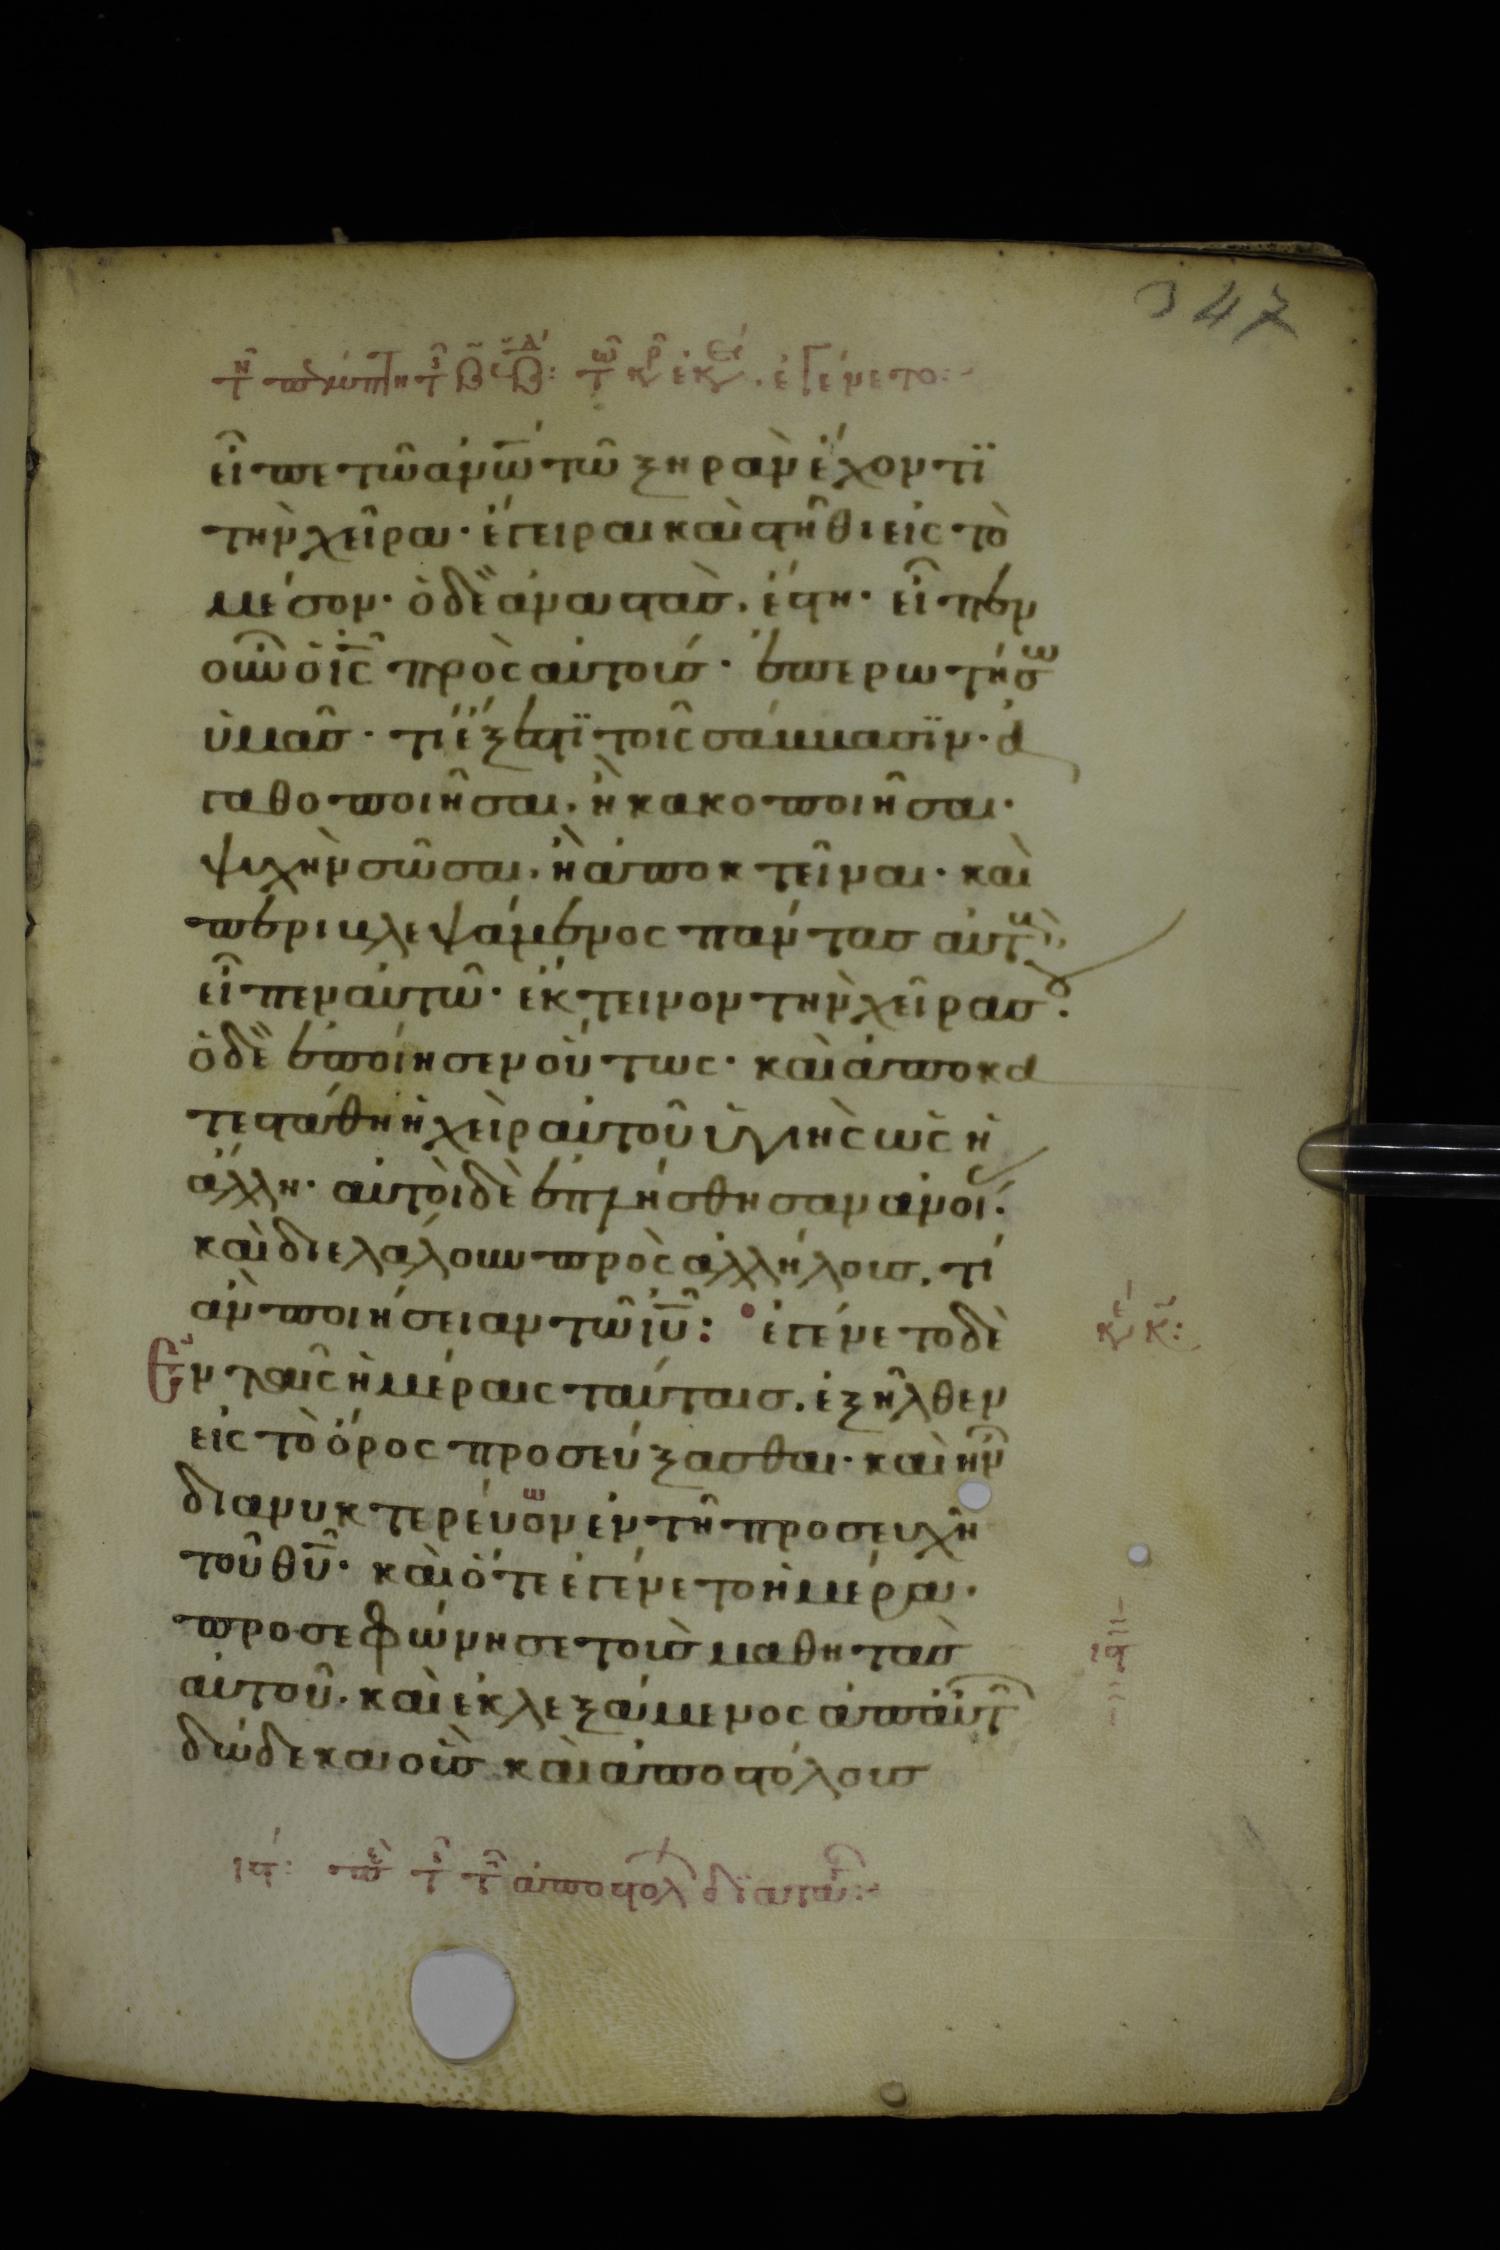 347
εἶπε τῶ ἀνω τῶ ξηρὰν ἔχοντϊ
τὴν χεῖρα· ἔγειραι καὶ στῆθι εἰς τὸ
μέσον· ὁ δὲ ἀναστὰς, ἔστη· εἶπεν
οὖν ὁ ις πρὸς αὐτούς· ἐπερωτήσω
ὑμᾶς· τί ἔξεστϊ τοῖς σάββασϊν· ἀ
γαθοποιῆσαι, ἢ κακοποιῆσαι·
ψυχὴν σῶσαι, ἢ ἀποκτεῖναι· καὶ
περιβλεψάμενος πάντας αὐτους
εἶπεν αὐτῶ· ἔκτεινον τὴν χεῖρα σου·
ὁ δὲ ἐποίησεν οὕτως· καὶ ἀποκα
τεστάθη ἡ χεὶρ αὐτοῦ ὑγιὴς ὡς ἡ
ἄλλη· αὐτοὶ δὲ ἐπλήσθησαν ἀνοί
καὶ διελάλουν πρὸς ἀλλήλους, τί
ἂν ποιήσειαν τῶ ιυ: ἐγένετο δὲ
Ἐν ταῖς ἡμέραις ταύταις, ἐξῆλθεν
εἰς τὸ ὄρος προσεύξασθαι· καὶ ἦν
διανυκτερεύον ἐν τῆ προσευχῆ
τοῦ θυ· καὶ ὅτε ἐγένετο ἡμέρα·
προσεφώνησε τοὺς μαθητὰς
αὐτοῦ· καὶ ἐκλεξάμενος ἀπ' αὐτ
δώδεκα οὓς καὶ ἀποστόλους
ιϛ: πε τ τ ἀποστολ διαταγ: